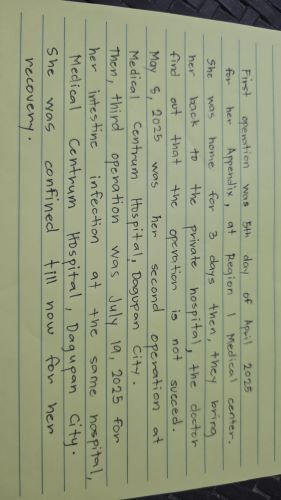 First operation was 5th day of April 2025
for her Appendix, at Region 1 Medical center.
She was home for 3 days then, they bring
her back to the private hospital, the doctor
find out that the operation is not succed.
May 8, 2025 was her second operation at
Medical Centrum Hospital, Dagupan City.
Then, third operation was July 19, 2025 for
her intestine infection at the same hospital,
Medical Centrum Hospital, Dagupan City.
She was confined till now for her
recovery.